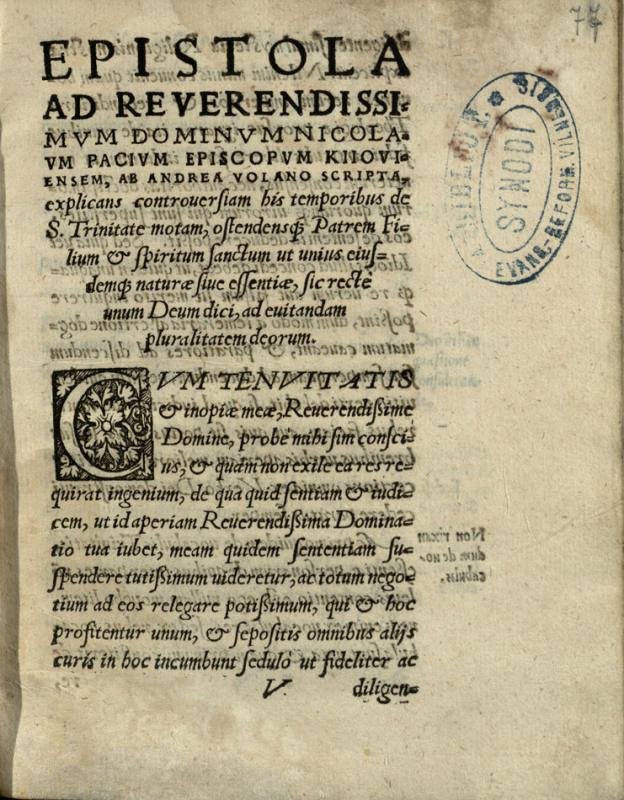 77
EPISTOLA
AD REVERENDISSI-
MVM DOMINVM NICOLA-
VM PACIVM EPISCOPVM KIIOVI-
ENSEM, AB ANDREA VOLANO SCRIPTA,
explicans controuersiam his temporibus de
S. Trinitate motam, ostendensq́; Patrem Fi-
lium & spiritum sanctum ut unius eius-
demq́; naturæ siue essentiæ, sic rectè
unum Deum dici, ad euitandam
pluralitatem deorum.
CVM TENVITATIS
& inopiæ meæ, Reuerendißime
Domine, probè mihi sim consci-
us, & quàm non exile ea res re-
quirat ingenium, de qua quid sentiam & iudi-
cem, ut id aperiam Reuerendißima Domina-
tio tua iubet, meam quidem sententiam su-
spendere tutißimum uideretur, ac totum nego-
tium ad eos relegare potißimum, qui & hoc
profitentur unum, & sepositis omnibus alijs
curis in hoc incumbunt sedulò ut fideliter ac
V diligen-
SYNODI
EVANG. REFORM. VILNENSIS